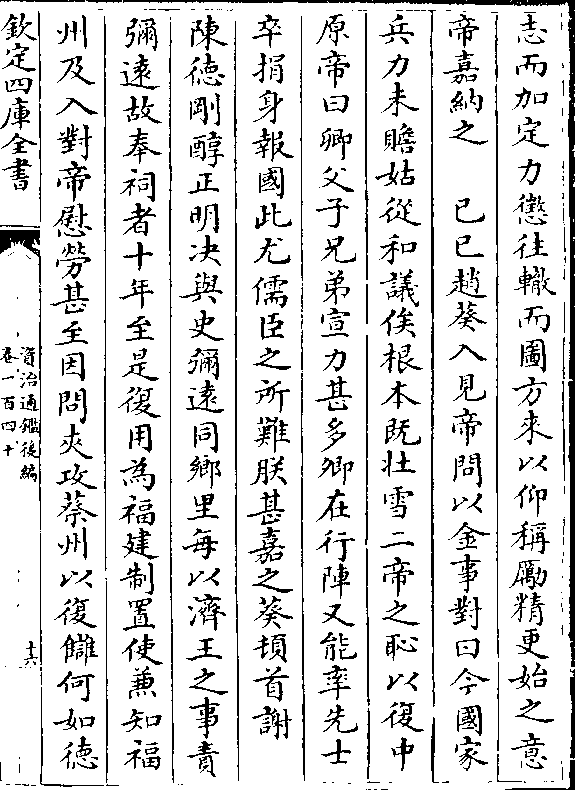 志而加定力懲往轍而圖方來以仰稱勵精更始之意
帝嘉納之　己巳趙葵入見帝問以金事對曰今國家
兵力未贍姑從和議俟根本既壯雪二帝之恥以復中
原帝曰卿父子兄弟宣力甚多卿在行陣又能率先士
卒捐身報國此尤儒臣之所難朕甚嘉之葵頓首謝
陳德剛醇正明决與史彌遠同鄉里每以濟王之事責
彌遠故奉祠者十年至是復用為福建制置使兼知福
州及入對帝慰勞甚至因問夾攻蔡州以復讎何如德
欽定四庫全書
資治通鑑後編
卷一百四十
十六